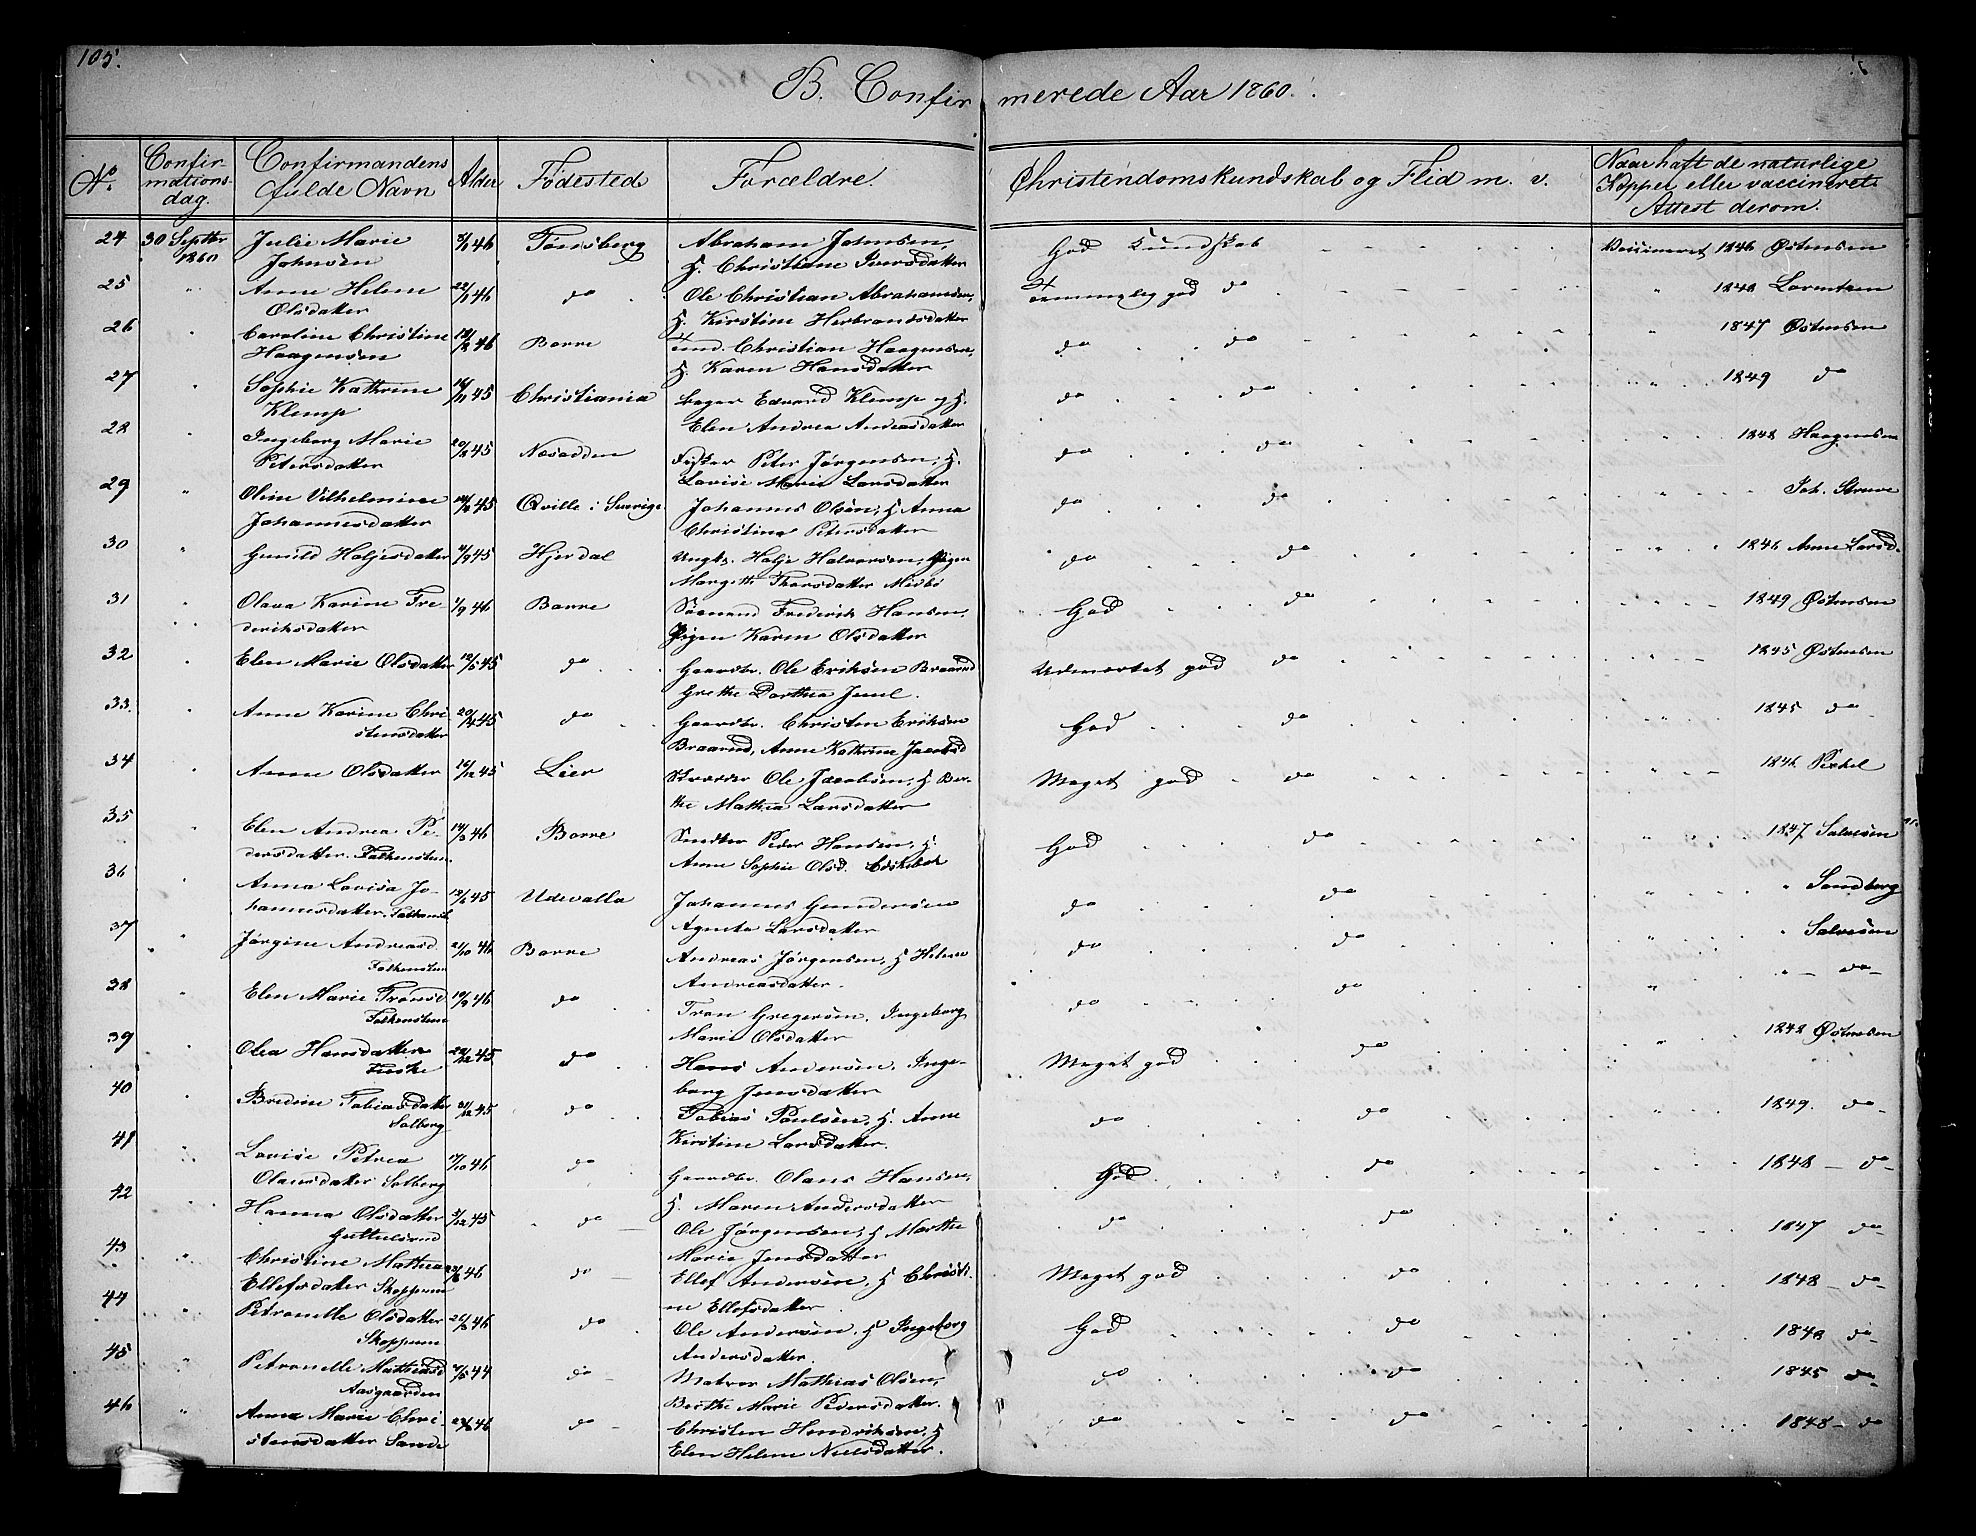 105.
B. Confirmerede Aar 1860.
No. Confirmationsdag. Confirmandens fulde Navn Alder Fødested Forældre. Christendomskundskab og Flid m. v. Naar haft de naturlige Kopper eller vaccineret Attest derom.
24 30 Septbr 1860 Julie Marie Johnsen 46 Tønsberg Abraham Johnsen, H. Christiane Iversdatter God Kundskab 1846 Østensen
25 " Anne Helene Olsdatter 46 do Ole Christian Abrahamsen, H. Kirstine Herbrandsdatter Temmelig god do " Lorentzen
26 " Caroline Christine Haagensen 46 Borre Christian Haagensen, H. Karen Hansdatter do do " 1847 Østensen
27 " Sophie Kathrine Klemp 45 Christiania Bager Edvard Klemp og H. Elen Andrea Andreasdatter do do 1849 do
28 Ingeborg Marie Petersdatter 45 Næsodden Fisker Peter Jørgensen, H. Lovise Marie Larsdatter do do 1848 Haagensen
29 " Oline Vilhelmine Johannesdatter 45 Qville i Sverige Johannes Olsen, H Anna Christina Petersdatter do do Joh. Struve
30 " Gunild Holjesdatter 45 Hjerdal Ungk. Holje Halvorsen, Pigen Margith Thorsdatter Midbø do do 1846 Anne Larsd.
31 Olava Karine Frederiksdatter 1/9 46 Borre Sømand Frederik Hansen, Pigen Karen Olsdatter God do 1849 Østensen
32 Elen Marie Olsdatter 45 do Gaardbr. Ole Eriksen Braarud Grethe Dorthea Juul. Udmærket god do 1845 Østensen
33. Anne Karine Christensdatter 45 do Gaardbr. Christen Eriksen Braarud, Anne Kathrine Jacobsd God do 1845 do
34 Anne Olsdatter 45 Lier Skræder Ole Jacobsen, H Berthe Mathea Larsdatter Meget god do 1846
35 Elen Andrea Pedersdatter. Falkensten 46 Borre Peder Hansen, H. Anne Sophie Olsd. God do 1847 Salvesen
36 Anna Lovisa Johannesdatter. 45 Udevalla Johannes Gundersen Agneta Larsdatter do do " Sandberg
37 " Jørgine Andreasd. Falkensten 46 Borre Andreas Jørgensen, H Helene Andreasdatter. do do " Salvesen
38 Elen Marie Trønsd Falkensten 46 do Tron Gregersen. Ingeborg Marie Olsdatter do do " " do
39 Olea Hansdatter 45 do Hans Andersen. Ingeborg Jensdatter Meget god do 1848 Østensen
40 Bredine Tobiasdatter Solberg 45 do Tobias Poulsen, H. Anne Kirstine Larsdatter. do do 1849. do
41 Lovise Petrea Olausdatter Solberg 46 do Gaardbr. Olaus Hansen, H. Maren Andersdatter God. do 1848 do
42 Hanna Olsdatter 45 do Ole Jørgensen, H Marthe Marie Jensdatter do do 1847 do
43 Christine Mathea Ellefsdatter Skoppum 46 do Ellef Andersen, H Christine Ellefsdatter. Meget god do 1848 do
44 " Petronelle Olsdatter Skoppum 46 do Ole Andersen, H Ingeborg Andersdatter. God do do
45 " Petronelle Mathiasd Aasgaarden 44 do Matros Mathias Olsen, Berthe Marie Pedersdatter. do do 1845 do
46 " Anna Marie Christensdatter Sande 46 do Christen Hendriksen, H Elen Helene Nielsdatter. do do 1848 do